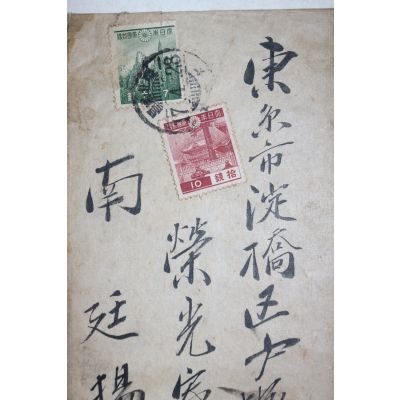 東京市淀橋区
榮光
南廷揚
大日本帝國郵便
7
大日本帝國郵便
10
拾錢